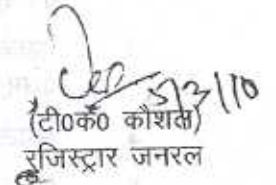 5/2/10
(टी0के0 कौशल)
रजिस्ट्रार जनरल